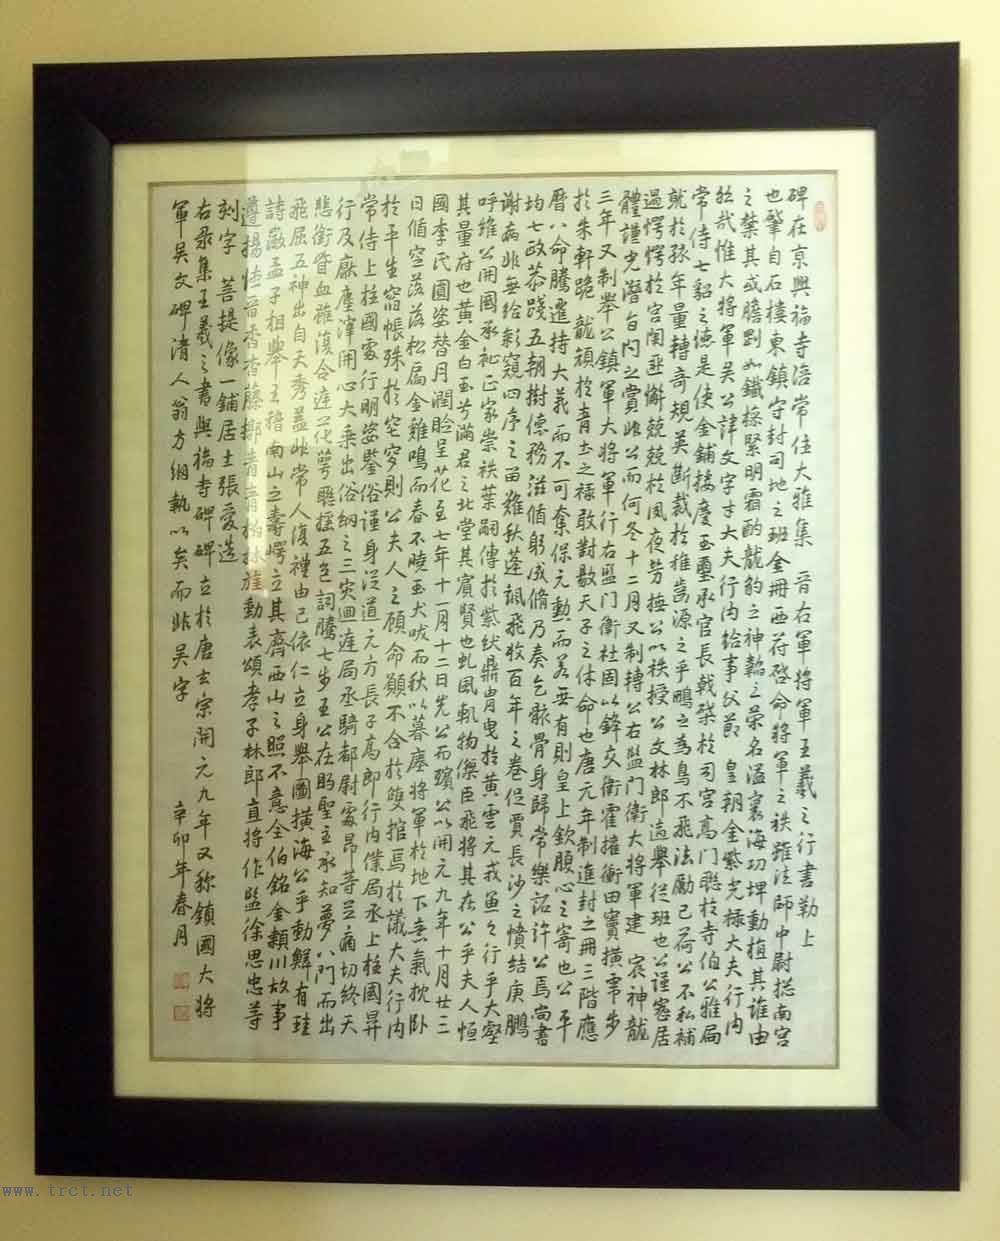 碑在京興福寺涪常住大雅集　晉右軍將軍王羲之行書勒上
也肇自石樓東鎮守封司地之班金冊西符啓命將軍之秩雖法師中尉摠南宮
之禁其或膽剴如鐵樑緊明霜酌龍豹之神韜之榮名溢寰海功埤動植其誰由
然哉惟大將軍吳公諱文字才大夫行內給事父節　皇朝金紫光祿大夫行內
常侍七貂之德是使金鋪接慶玉璽承官長戟榮於司宮高門聯於寺伯公雅局
就於孩年量轉奇規英斷裁於稚歲源之乎鵬之為鳥不飛法勵己荷公不私補
過愕愕於宮闈匪懈兢兢於夙夜勞捶公以秩授公文林郎適舉從班也公謹寬居
體謹光潛旨內之賞非公而何冬十二月又制轉公右監門衛大將軍建　宸神龍
三年又制舉公鎮軍大將軍行右監門衛杜固以鋒交衛霍擁衝田竇橫雲步
於朱軒跪　龍頏於青土之祿敢對敭天子之休命也唐元年制進封之冊三階應
曆八命騰遷持大義而不可奪保元勳而若無有則皇上欽腹心之寄也公平
均七政恭踐五朝樹德務滋循躬成脩乃奏乞骸骨身歸常樂詔許公焉尚書
謝病非無給彩窺四序之苗難秋蓬飄飛收百年之卷促賈長沙之憤結庚鵬
呼維公開國承祉正家崇袟葉嗣傳於紫紱鼎冑曳於黃雲元戎魚之行乎大壑
其量府也黃金白玉兮滿君之北堂其賓賢也虬風軏物傑臣飛將其在公乎夫人恒
國李氏圓姿替月潤臉呈花至七年十一月十二日先公而殯公以開元九年十月廿三
日循窆落落松扃金雞鳴而春不曉玉犬吠而秋以暮塵將軍於地下意氣枕臥
於平生帘帳殊於窀穸則公夫人之顧命顯不合於雙棺焉於議大夫行內
常侍上柱國處行明姿鑒俗謹身從道元方長子高即行內僕局丞上柱國昇
行及厭塵滓開心大乘出俗網之三灾迴局丞騎都尉處昂等茲痛切終天
悲銜眥血雖復合遝花萼聯搖五色詞騰七步王公在昞聖主承知夢八門而出
飛屈五神出自天秀蓋非常人復禮由己依仁立身舉圖橫海公乎動鱗有珪
詩嚴孟子相舉王稽南山之壽崿立其齊西山之照不意全伯銘金穎川故事
遵揚陸晉香杳藤擲青青柏林旌動表頌孝子林郎直將作監徐思忠等
刻字　菩提像一鋪居士張愛造
右录集王羲之書興福寺碑碑立於唐玄宗開元九年又称鎮國大將
軍吳文碑清人翁方綱執以矣而非吳字
辛卯年春月
www.trct.net